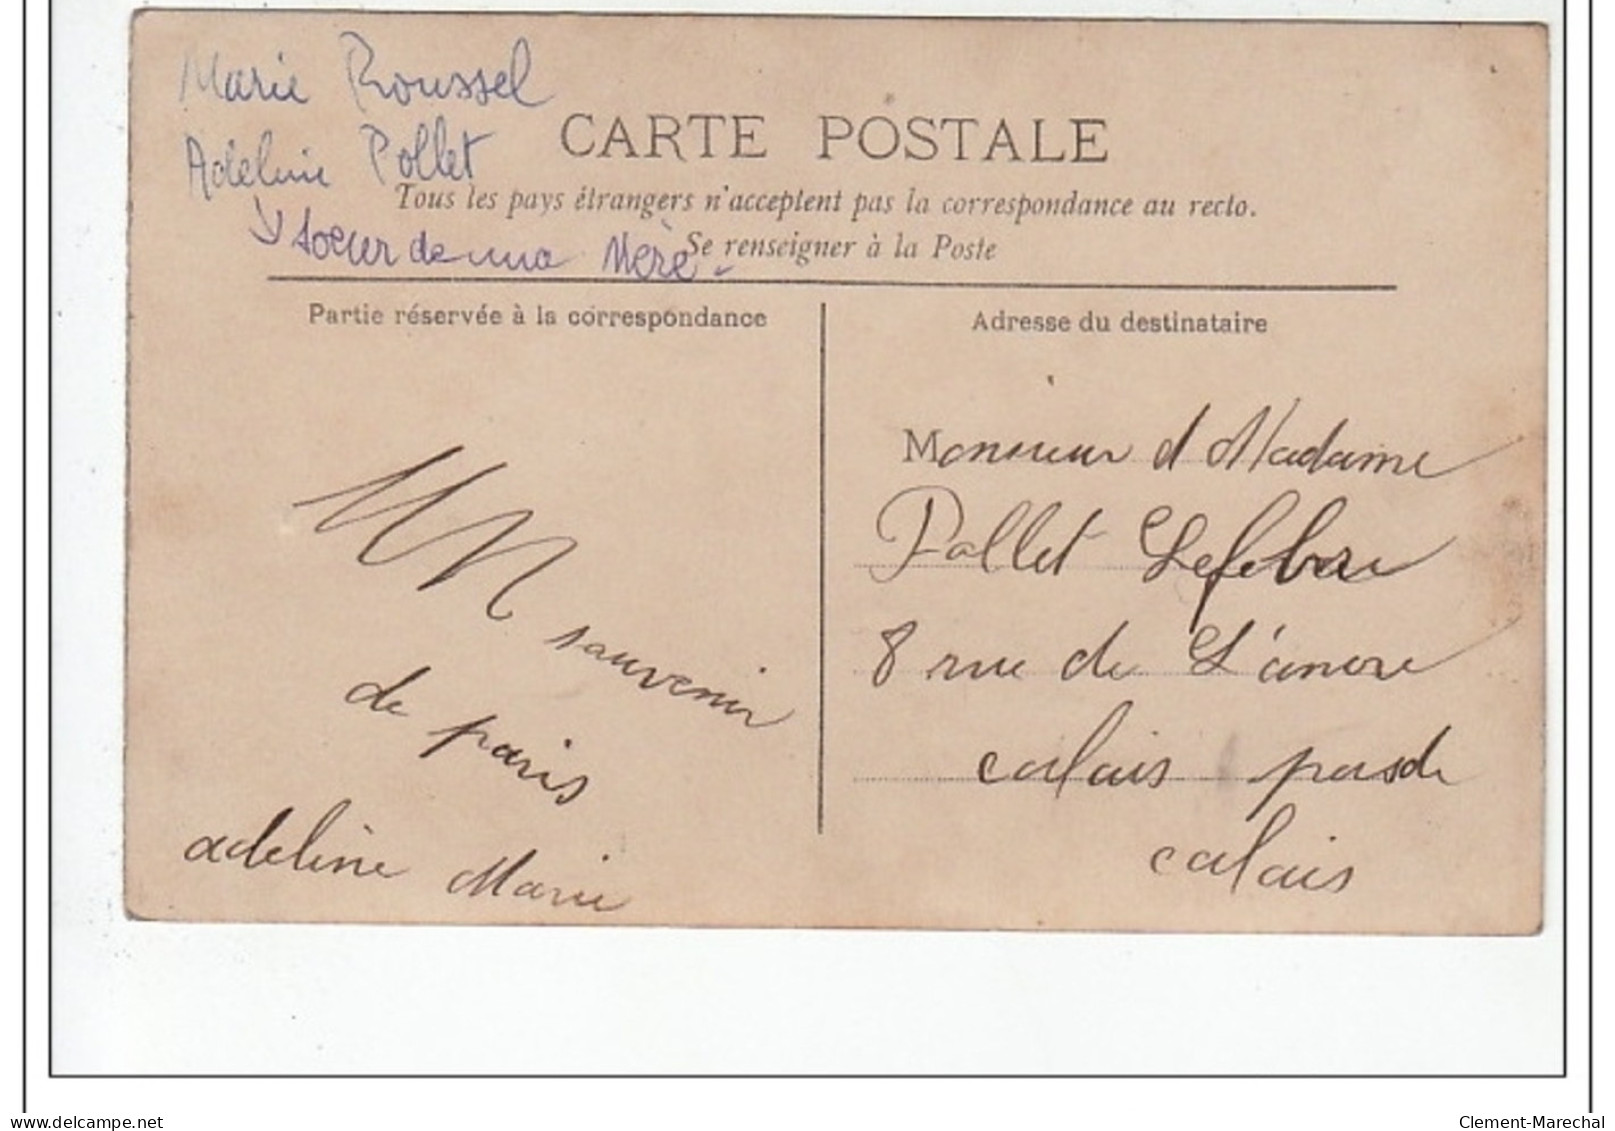 Marie Roussel
Adeline Pollet
soeur de ma Mère -
CARTE POSTALE
Tous les pays étrangers n'acceptent pas la correspondance au recto.
Se renseigner à la Poste
Partie réservée à la correspondance
Adresse du destinataire
Un souvenir
de paris
adeline Marie
Monsieur et Madame
Pollet Lefebvre
8 rue de
calais pasde
calais
delcampe.net
Clement-Marechal